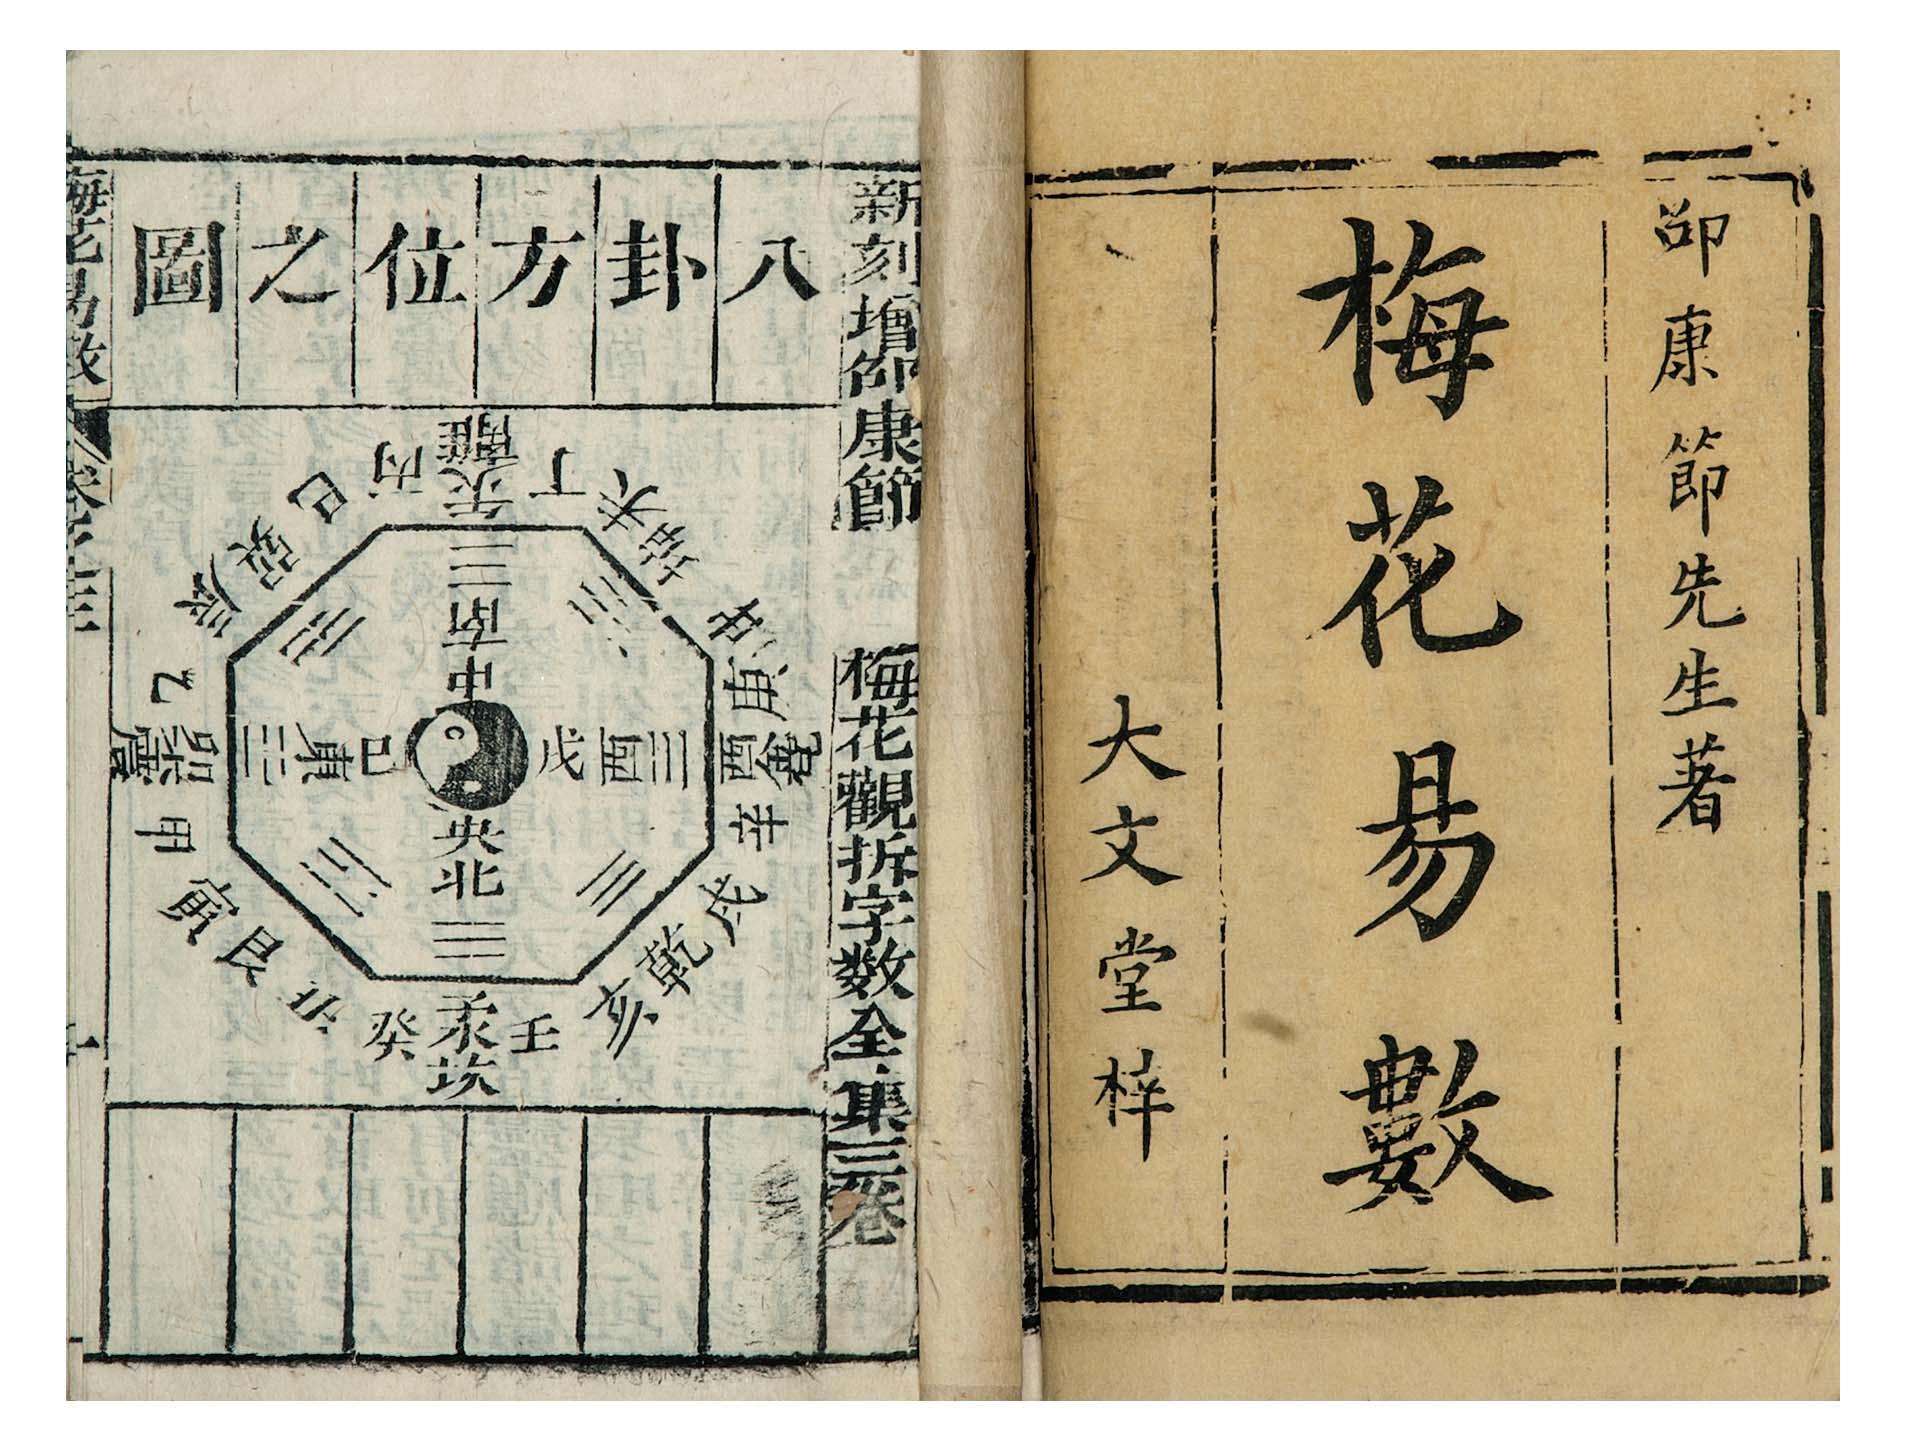 邵康節先生著
梅花易數
大文堂梓
新刻增邵康節 梅花觀拆字數全集三卷
八卦方位之圖
離
丙 午火 丁
巳 未
巽 坤
辰 申
南
中
乙 庚
震 卯 東 巳 戊 西 酉 兌
甲 辛
央
北
寅 戌
艮 乾
丑 亥
癸 子水 壬
坎
梅花易數